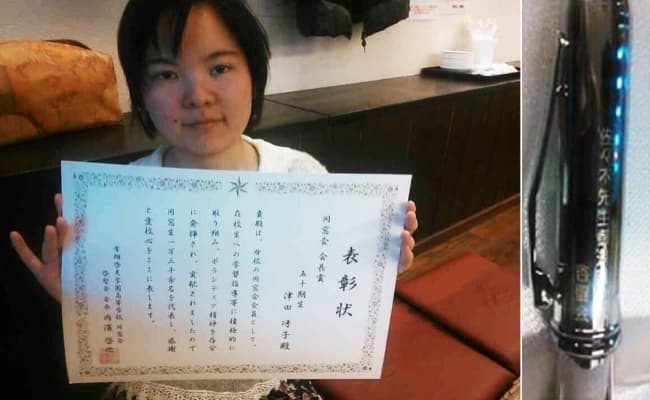 表彰状
同窓会 会長賞
五十期生
津田 冴子 殿
貴殿は、母校の同窓会会員として、
在校生への学習指導等に積極的に
取り組み、ボランティア精神を存分
に発揮され、貢献されましたので
同窓生一万三千余名を代表し、感謝
と愛校心をここに表します。
常翔啓光学園高等学校 同窓会
会長 内濱
佐々木先生